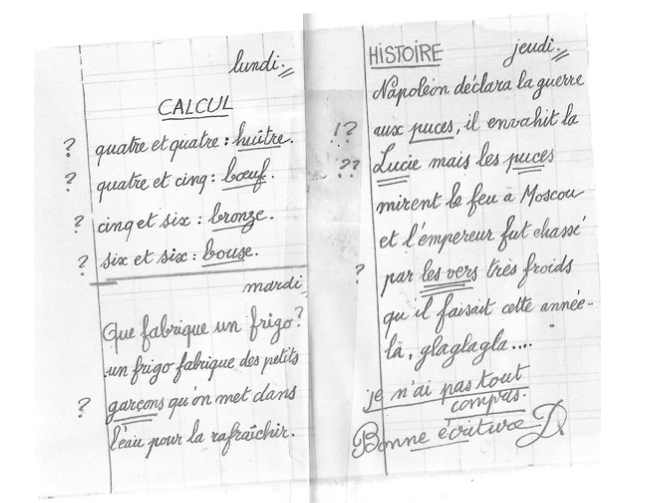 lundi.
CALCUL
? quatre et quatre : huître.
? quatre et cinq : bœuf.
? cinq et six : bronze.
? six et six : bouse.
mardi
Que fabrique un frigo?
un frigo fabrique des petits
? garcons qu'on met dans
l'eau pour la rafraîchir.
HISTOIRE jeudi.
Napoléon déclara la guerre
!? aux puces, il envahit la
?? Lucie mais les puces
mirent le feu à Moscou
et l'empereur fut chassé
? par les vers très froids
qu'il faisait cette année-
là, glaglagla....
je n'ai pas tout
compas.
Bonne écriture D